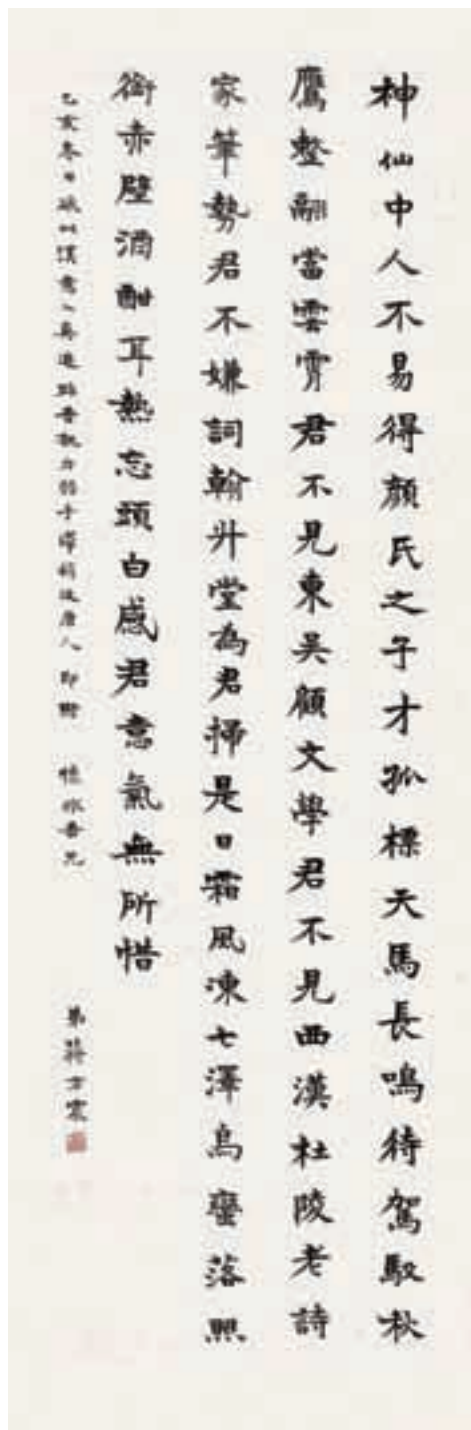 神仙中人不易得顏氏之子才孤標天馬長鳴待駕馭秋
鷹整翮當雲霄君不見東吳顧文學君不見西漢杜陵老詩
家筆勢君不嫌詞翰升堂為君掃是日霜風凍七澤烏蠻落照
銜赤壁酒酣耳熱忘頭白感君意氣無所惜
乙亥冬日 漢 人 即 兄
弟蔣方震